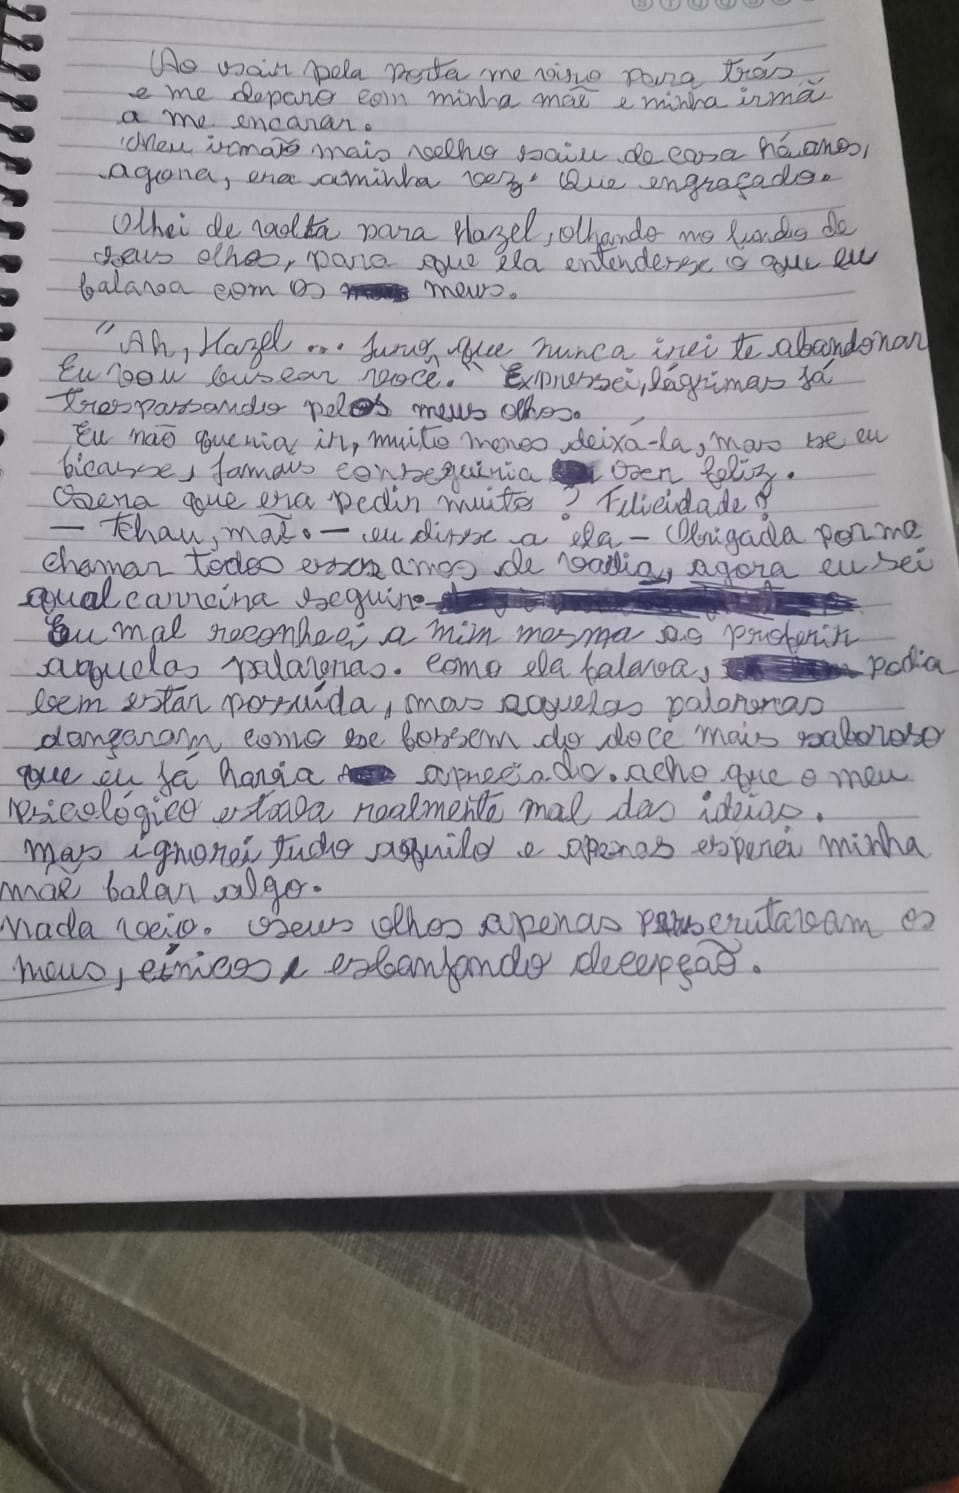 Ao sair pela porta me viro para trás
e me deparo com minha mãe e minha irmã
a me encarar.
Meu irmão mais velho saiu de casa há anos,
agora, era a minha vez. Que engraçado.
Olhei de volta para Hazel, olhando no fundo de
seus olhos, para que ela entendesse o que eu
falava com os meus.
"Ah, Hazel... Juro que nunca irei te abandonar
Eu vou buscar você." Expressei, lágrimas já
trespassando pelos meus olhos.
Eu não queria ir, muito menos deixá-la, mas se eu
ficasse, jamais conseguiria ser feliz.
Será que era pedir muito? Felicidade?
— Tchau, mãe. — eu disse a ela — Obrigada por me
chamar todos esses anos de vadia, agora eu sei
qual carreira seguir.
Eu mal reconheci a mim mesma ao proferir
aquelas palavras. Como ela falava, podia
bem estar possuída, mas aquelas palavras
dançaram como se fossem do doce mais saboroso
que eu já havia apreciado. acho que o meu
psicológico estava realmente mal das ideias.
Mas ignorei tudo aquilo e apenas esperei minha
mãe falar algo.
Nada veio. Seus olhos apenas perscrutavam os
meus, cínicos e esbanjando decepção.